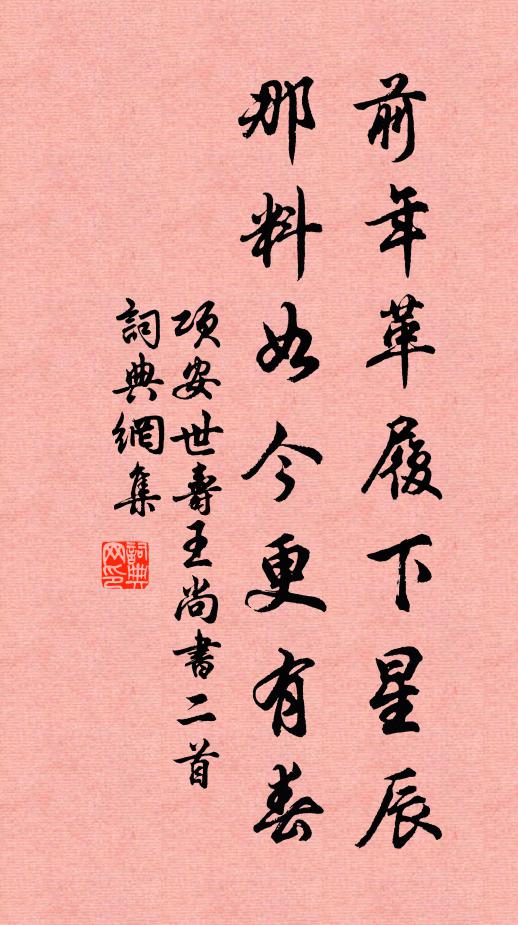 前年革履下星辰
那料如今更有春
項安世壽王尚書二首
詞典網集
詞典網印